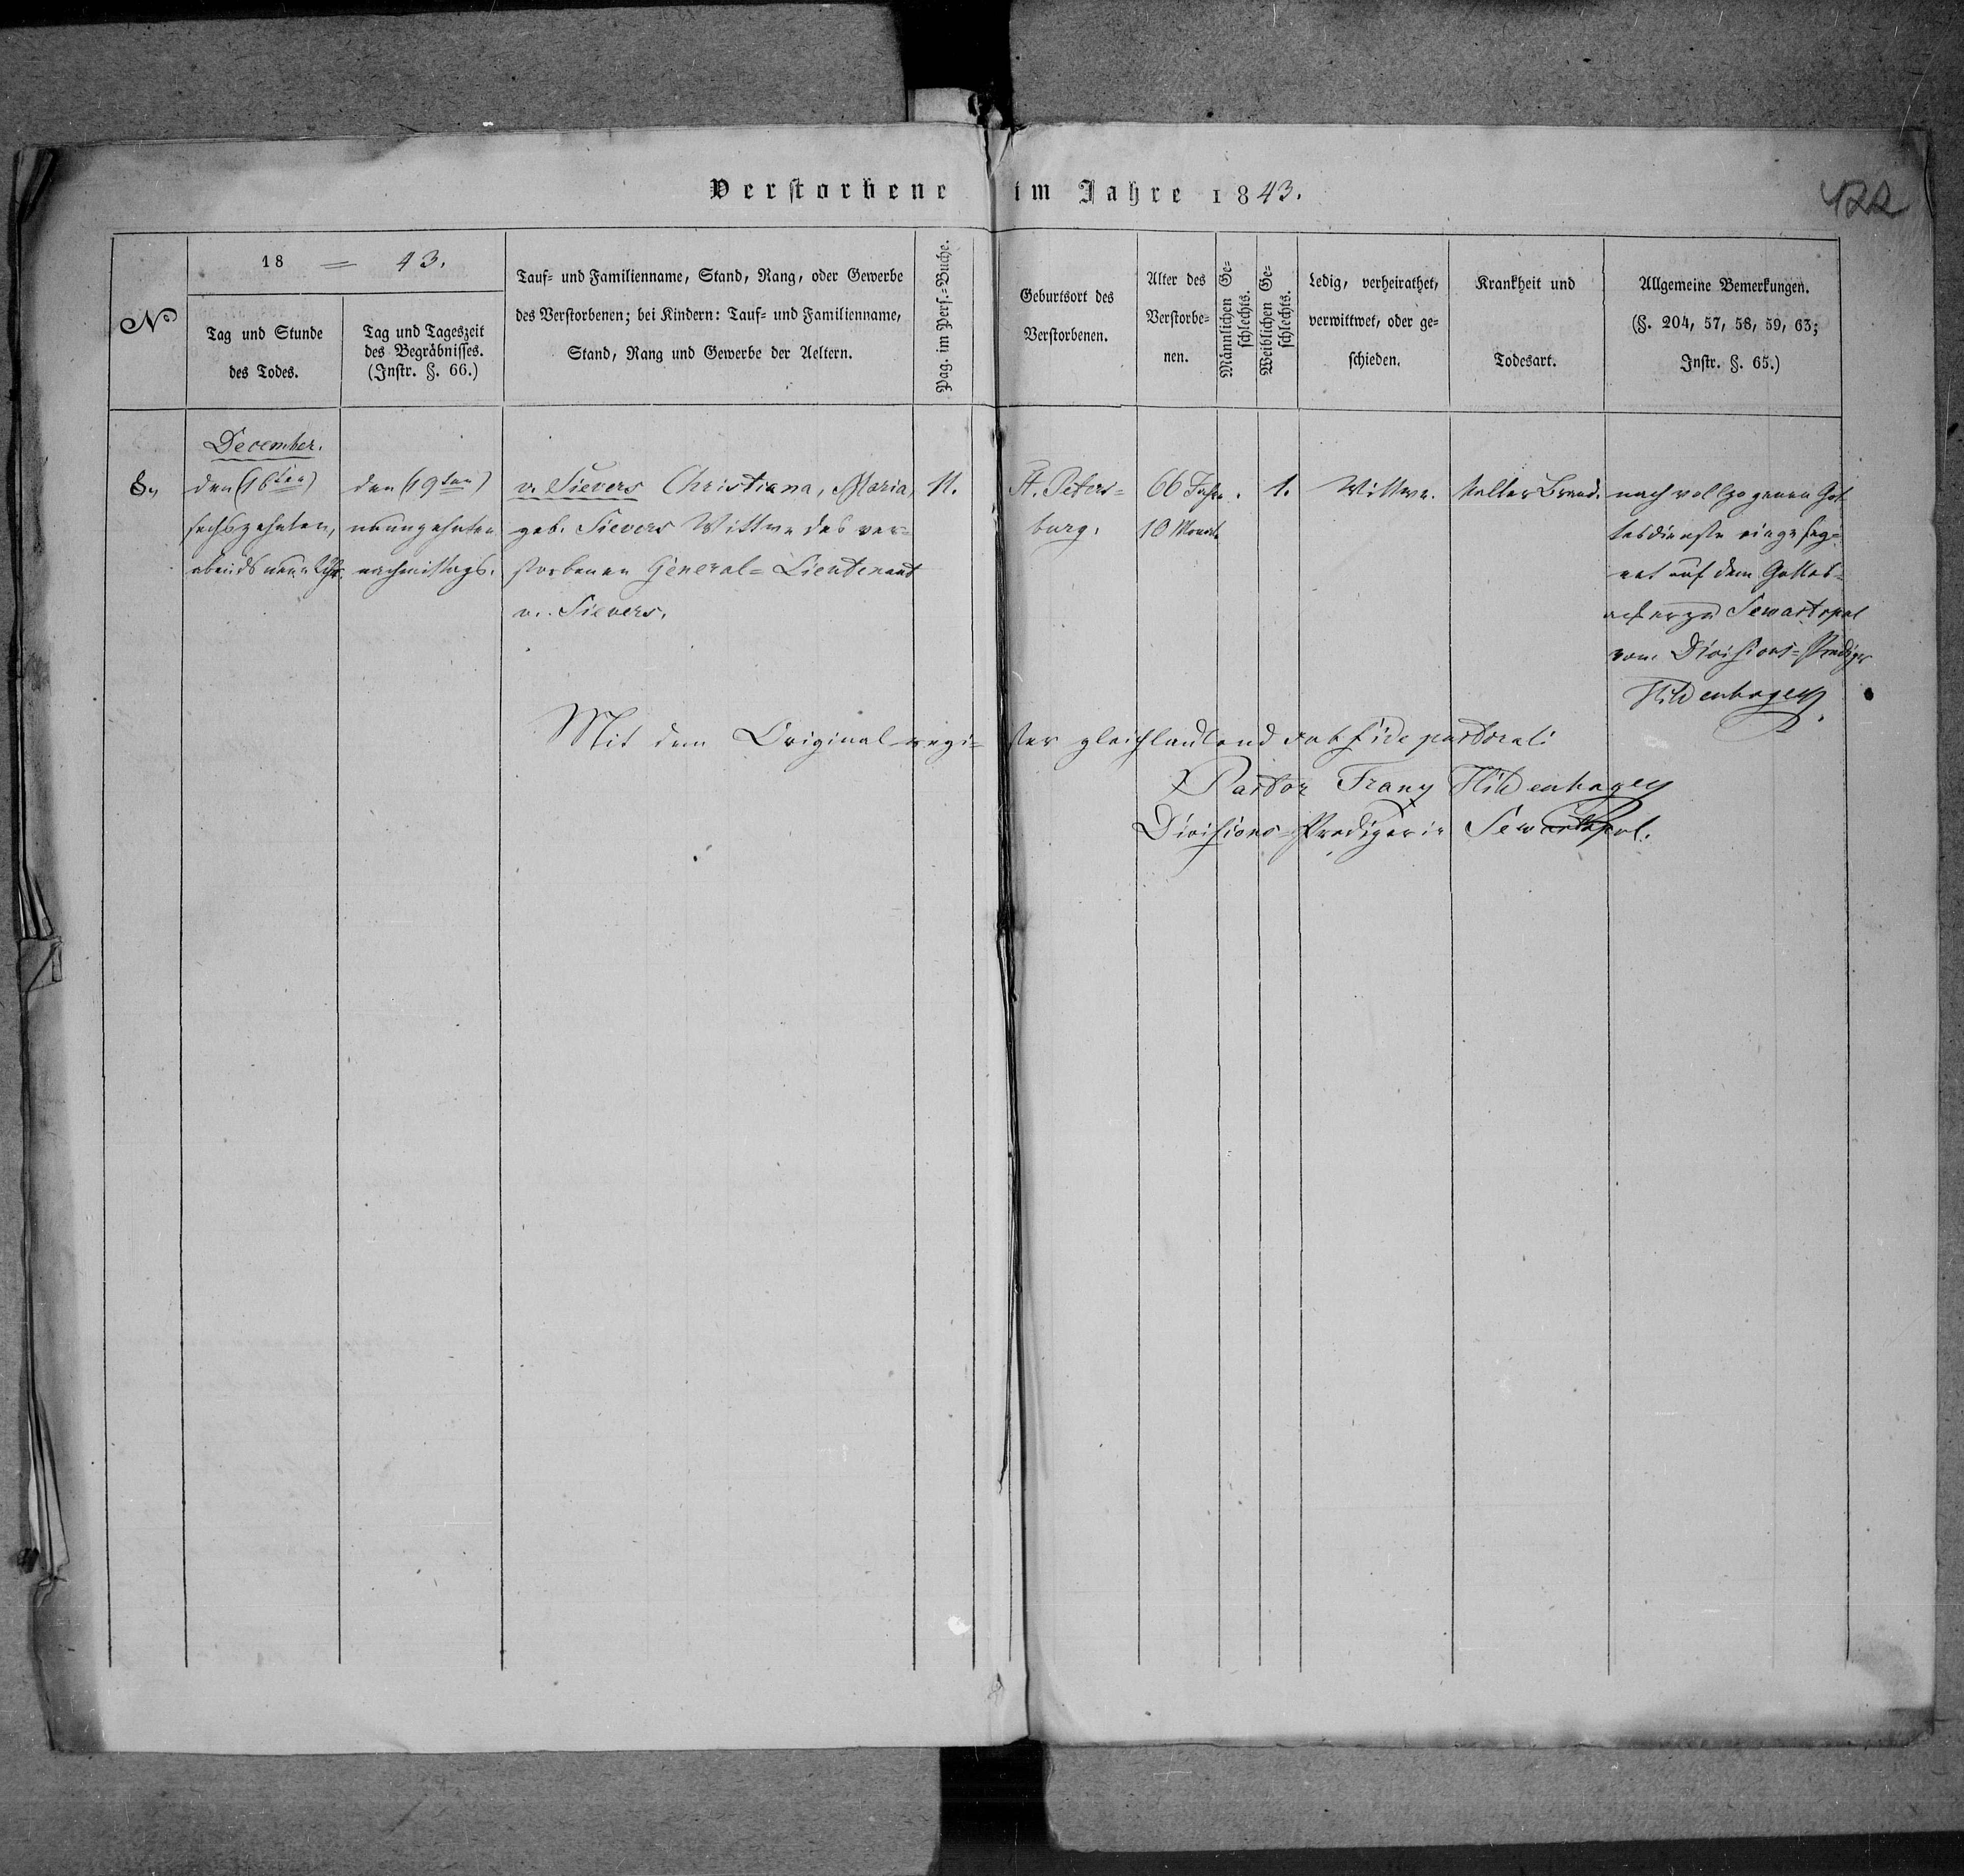 Verstorbene im Jahre 1843.
422
No
18 = 43.
Tag und Stunde
des Todes.
Tag und Tageszeit
des Begräbnisses.
(Instr. §. 66.)
Tauf- und Familienname, Stand, Rang, oder Gewerbe
des Verstorbenen; bei Kindern: Tauf- und Familienname,
Stand, Rang und Gewerbe der Aeltern.
Pag. im Pers.-Buche.
Geburtsort des
Verstorbenen.
Alter des
Verstorbe-
nen.
Männlichen Ge-
schlechts.
Weiblichen Ge-
schlechts.
Ledig, verheirathet,
verwittwet, oder ge-
schieden.
Krankheit und
Todesart.
Allgemeine Bemerkungen.
(§. 204, 57, 58, 59, 63;
Instr. §. 65.)
December.
8.
den (16ten)
sechszehnten,
abends neun Uhr.
den (19ten)
neunzehnten
nachmittags.
v. Sievers Christiana, Maria,
geb. Sievers Wittwe des ver-
storbenen General-Lieutenant
v. Sievers.
11.
St. Peters-
burg.
66 Jahre
10 Monat
1.
Wittwe.
kalter Brand.
nach vollzogenen Got
tesdienste eingeseg-
net auf dem Gottes-
acker zu Sewastopol
vom Divisions-Prediger
Hildenhagen.
Mit dem Originalregi- ster gleichlautend sub fide pastorali
Pastor Franz Hildenhagen
Divisions-Prediger in Sewastopol.